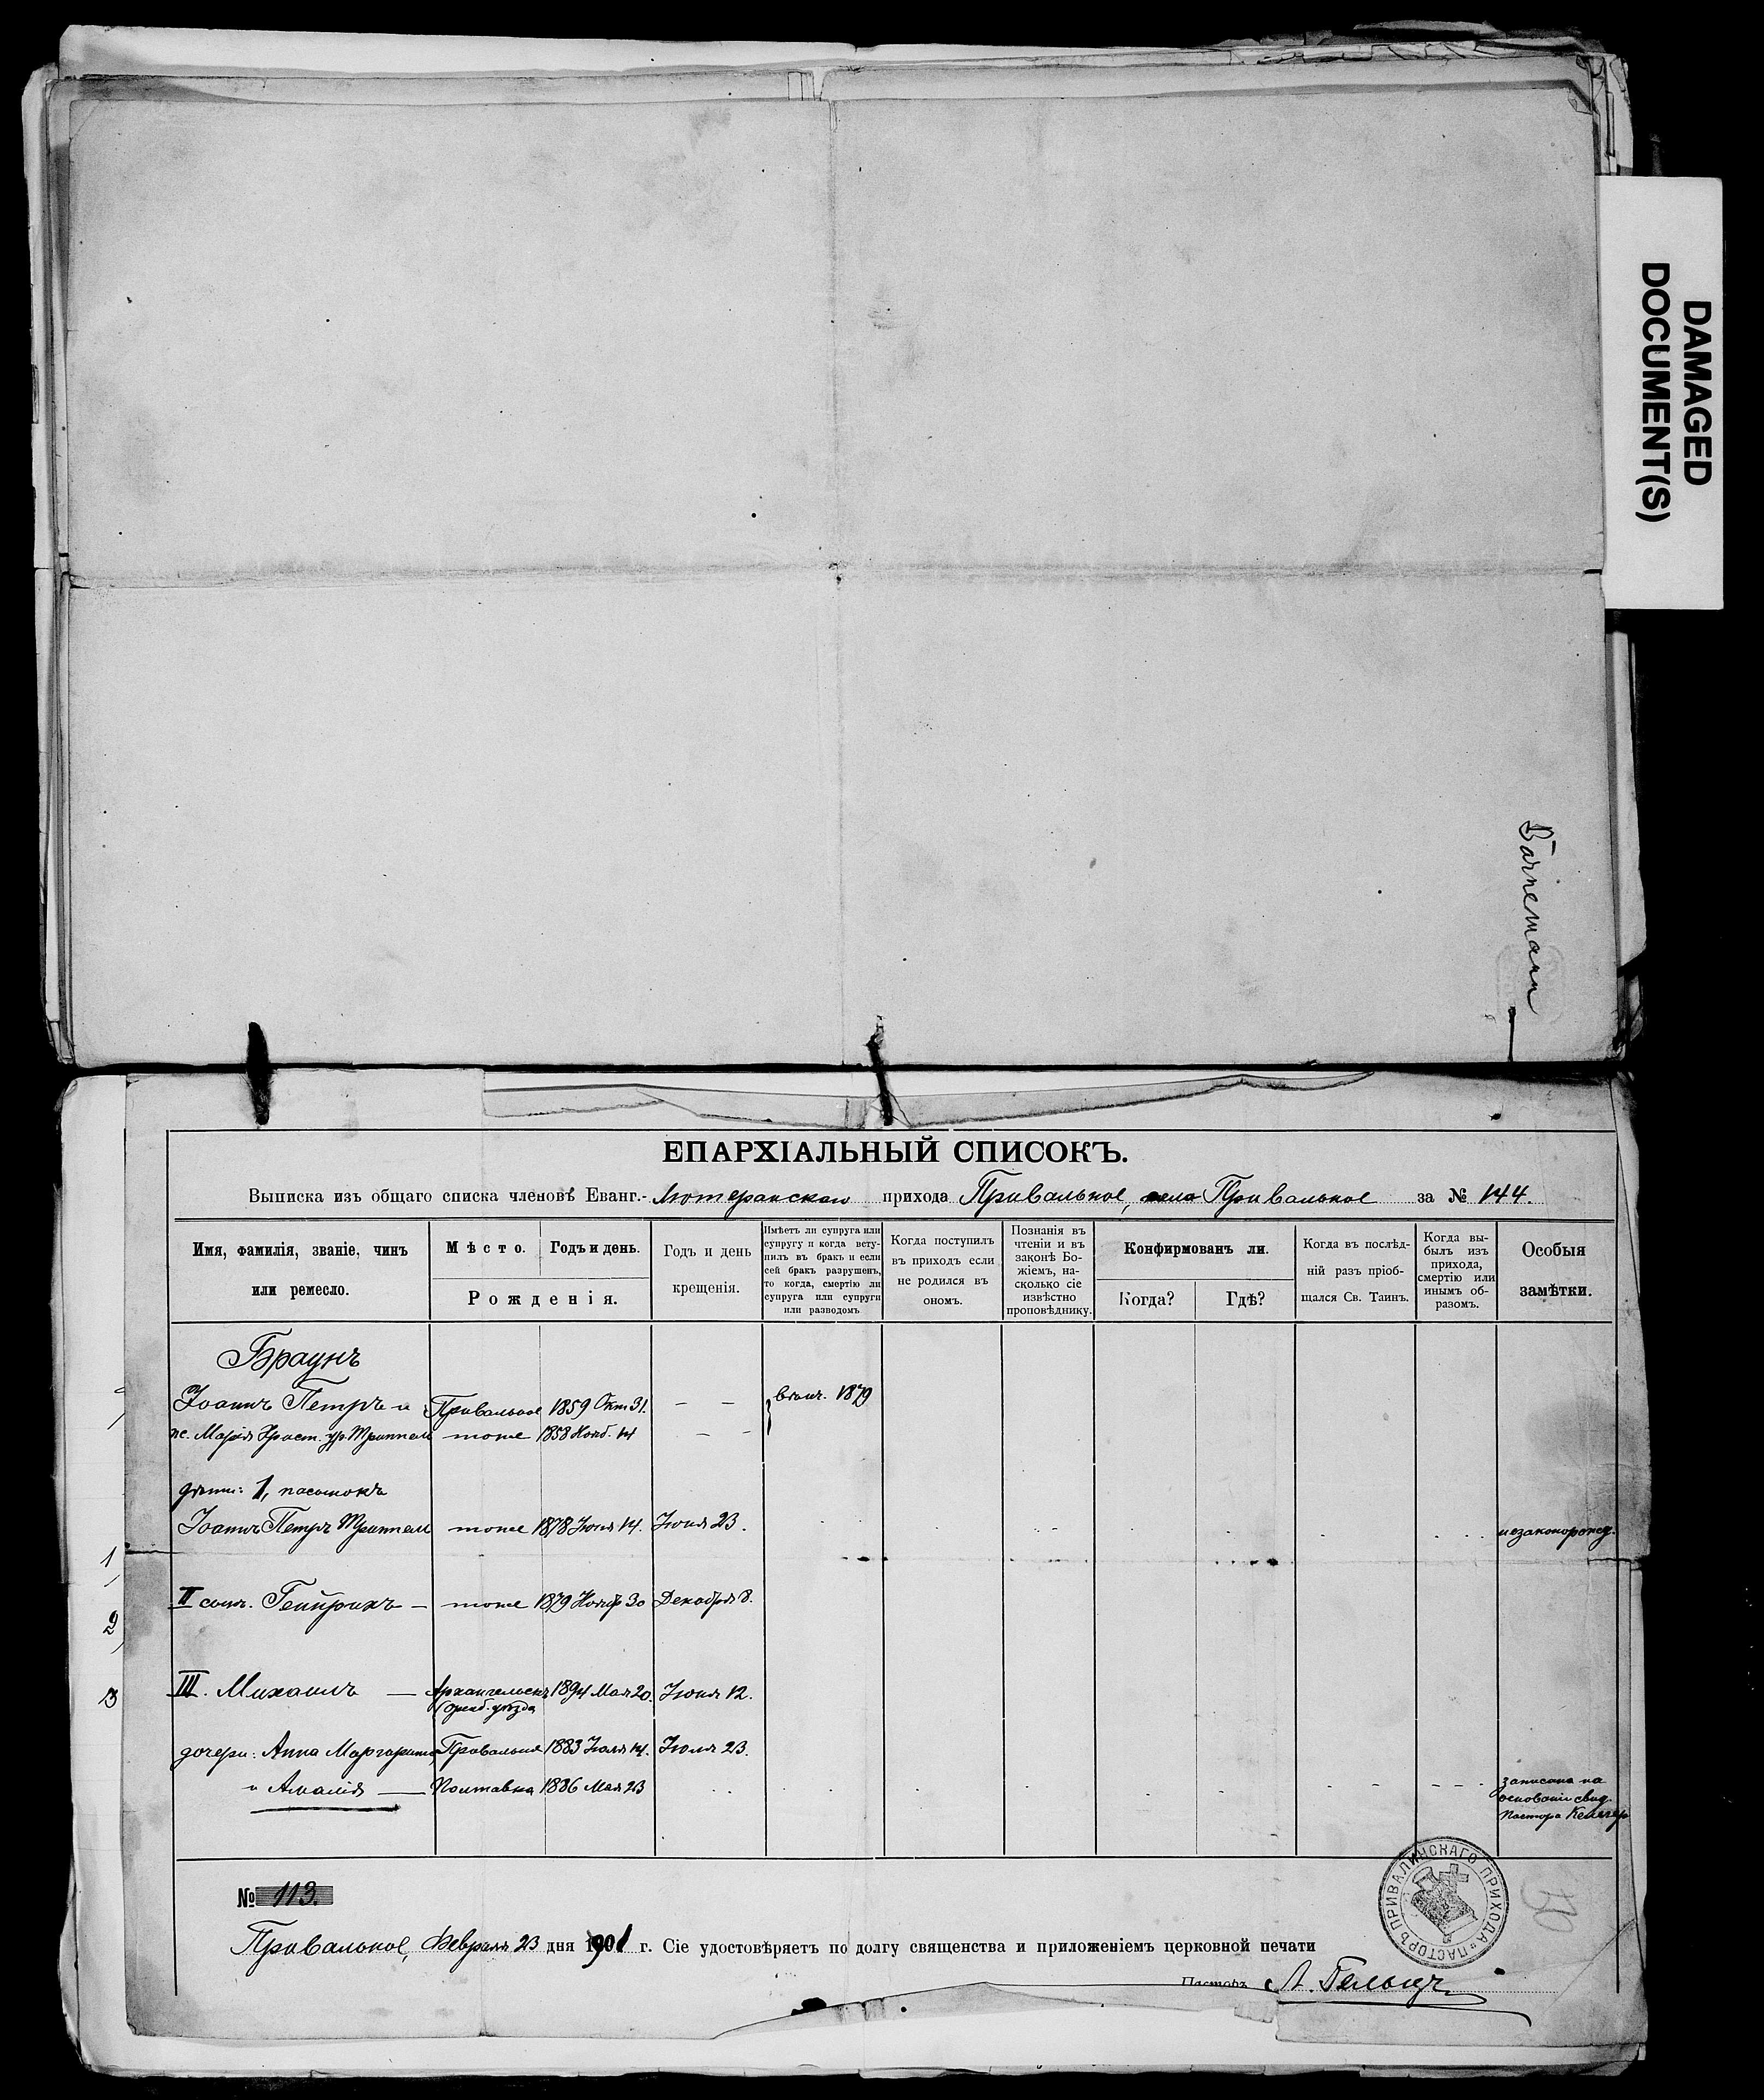 DAMAGED
DOCUMENT(S)
ЕПАРХІАЛЬНЫЙ СПИСОКЪ.
Выписка изъ общаго списка членовъ Еванг.- Лютеранскаго прихода Привальное, село Привальное за № 144.
Имя, фамилія, званіе, чинъ
или ремесло.
Мѣсто.
Годъ и день.
Рожденія.
Годъ и день
крещенія.
Имѣетъ ли супруга или
супругу и когда всту-
пилъ въ бракъ и если
сей бракъ разрушенъ,
то когда, смертію ли
супруга или супруги
или разводомъ
Когда поступилъ
въ приходъ если
не родился въ
ономъ.
Познанія въ
чтеніи и въ
законѣ Бо-
жіемъ, на-
сколько сіе
извѣстно
проповѣднику.
Конфирмованъ ли.
Когда?
Гдѣ?
Когда въ послѣд-
ній разъ пріоб-
щался Св. Таинъ.
Когда вы-
былъ изъ
прихода,
смертію или
инымъ об-
разомъ.
Особыя
замѣтки.
Браунъ
Іоаннъ Петръ и Привальное 1859 Окт 31. — — 1879
Марія Христ. ур. Триппель тоже 1858 Нояб. 14 — —
дѣти: 1, пасынокъ
Іоаннъ Петръ Триппель тоже 1878 Іюня 14. Іюня 23. незаконорожд.
1
II сынъ. Гейнрихъ — тоже 1879 Нояб 30 Декабря 8.
2
III. Михаилъ — Архангельскъ 1894 Мая 20. Іюня 12.
3
уѣзда
дочери: Анна Маргарита, Привальное 1883 Іюля 14. Іюля 23.
и Амалія — Полтавка 1886 Мая 23 записана на
основаніи свид.
Пастора
№ 113.
Привальное, Февраля 23 дня 1901 г. Сіе удостовѣряетъ по долгу священства и приложеніемъ церковной печати
Пасторъ
ПАСТОРЪ ПРИВАЛИНСКАГО ПРИХОДА